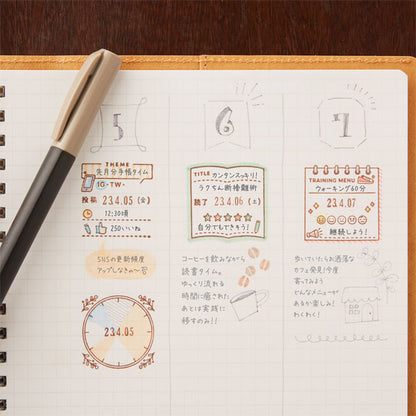 5
THEME
先月分手帳タイム
IG・TW・
投稿 23.4.05 (金)
12:30頃
250いいね
SNSの更新頻度
アップしなきゃ〜
23.4.05
6
TITLE カンタンスッキリ!
ラクちん断捨離術
読了 23.4.06 (土)
自分もできそう!
コーヒーを飲みながら
読書タイム。
ゆっくり流れる
時間に癒された
あとは実践に
移すのみ!!
7
TRAINING MENU
ウォーキング60分
23.4.07
継続しよう!
歩いていたらお洒落な
カフェ発見!今度
寄ってみよう
どんなメニューが
あるか楽しみ!
わくわく!